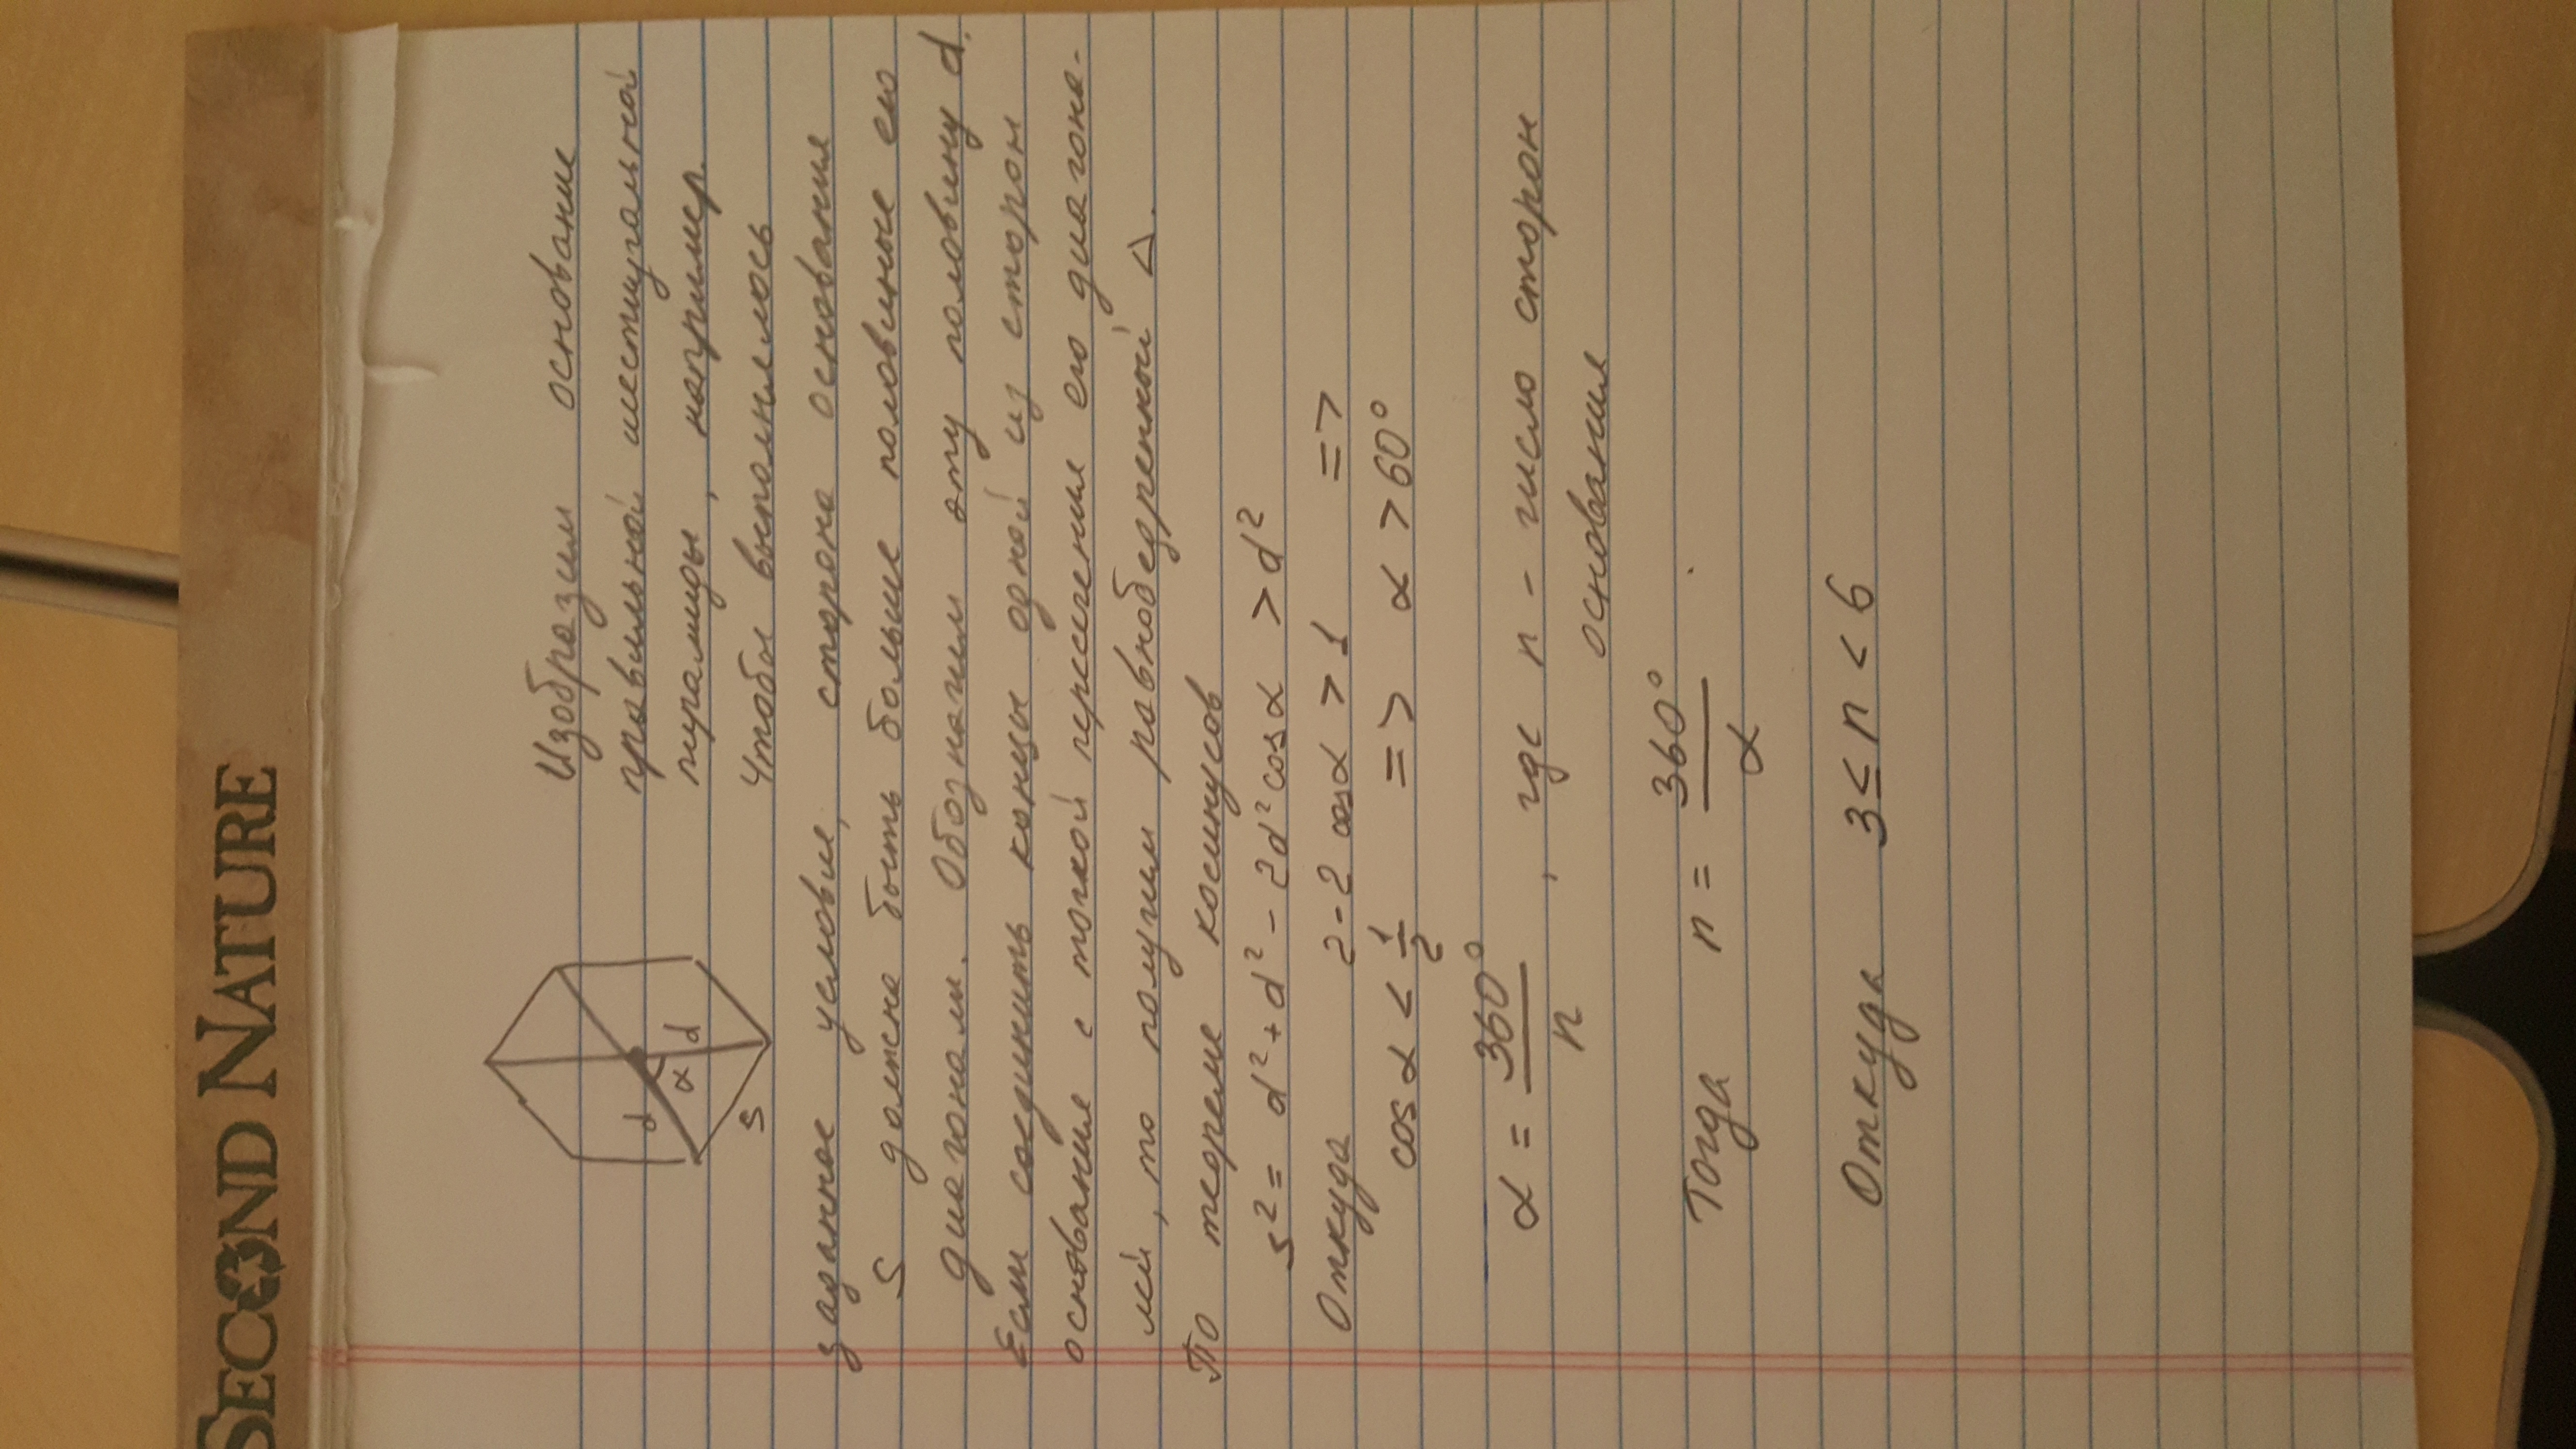 SECOND NATURE
Изобразим основание
правильной шестиугольной
пирамиды, например.
Чтобы выполнялось
d d α s
заданное условие, сторона основания
s должна быть больше половины его
диагонали. Обозначим эту половину d.
Если соединить концы одной из сторон
основания с точкой пересечения его диагона-
лей, то получим равнобедренный Δ.
По теореме косинусов
s² = d² + d² - 2d² cos α > d²
Откуда 2-2 cos α > 1 =>
cos α < 1/2 => α > 60°
α = 360°/n , где n - число сторон
основания
Тогда n = 360°/α .
Откуда 3 ≤ n < 6